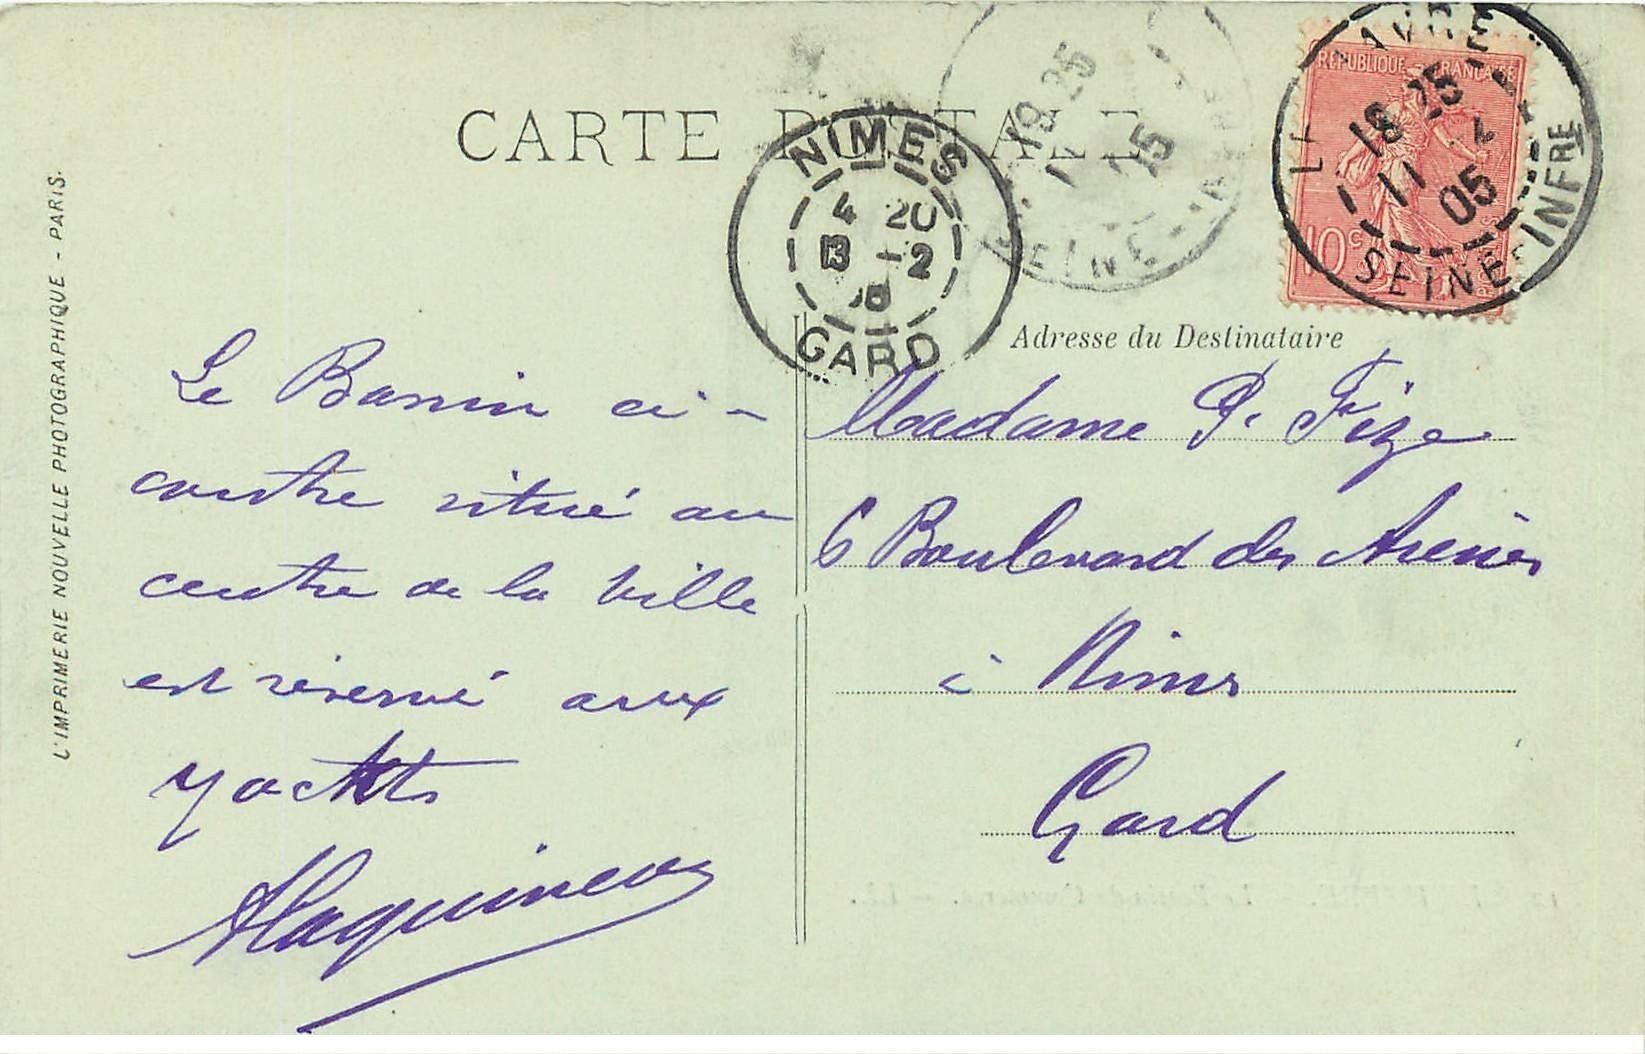 CARTE POSTALE
NIMES
4 20
13 -2
GARD
19 25
SEINE
REPUBLIQUE FRANCAISE
10 c
LE HAVRE
18 25
11 2
05
SEINE INFRE
Adresse du Destinataire
L'IMPRIMERIE NOUVELLE PHOTOGRAPHIQUE - PARIS.
Le Bassin ci-
contre situé au
centre de la ville
est réservé aux
yachts
Madame P. Fize
6 Boulevard des Arènes
à Nimes
Gard